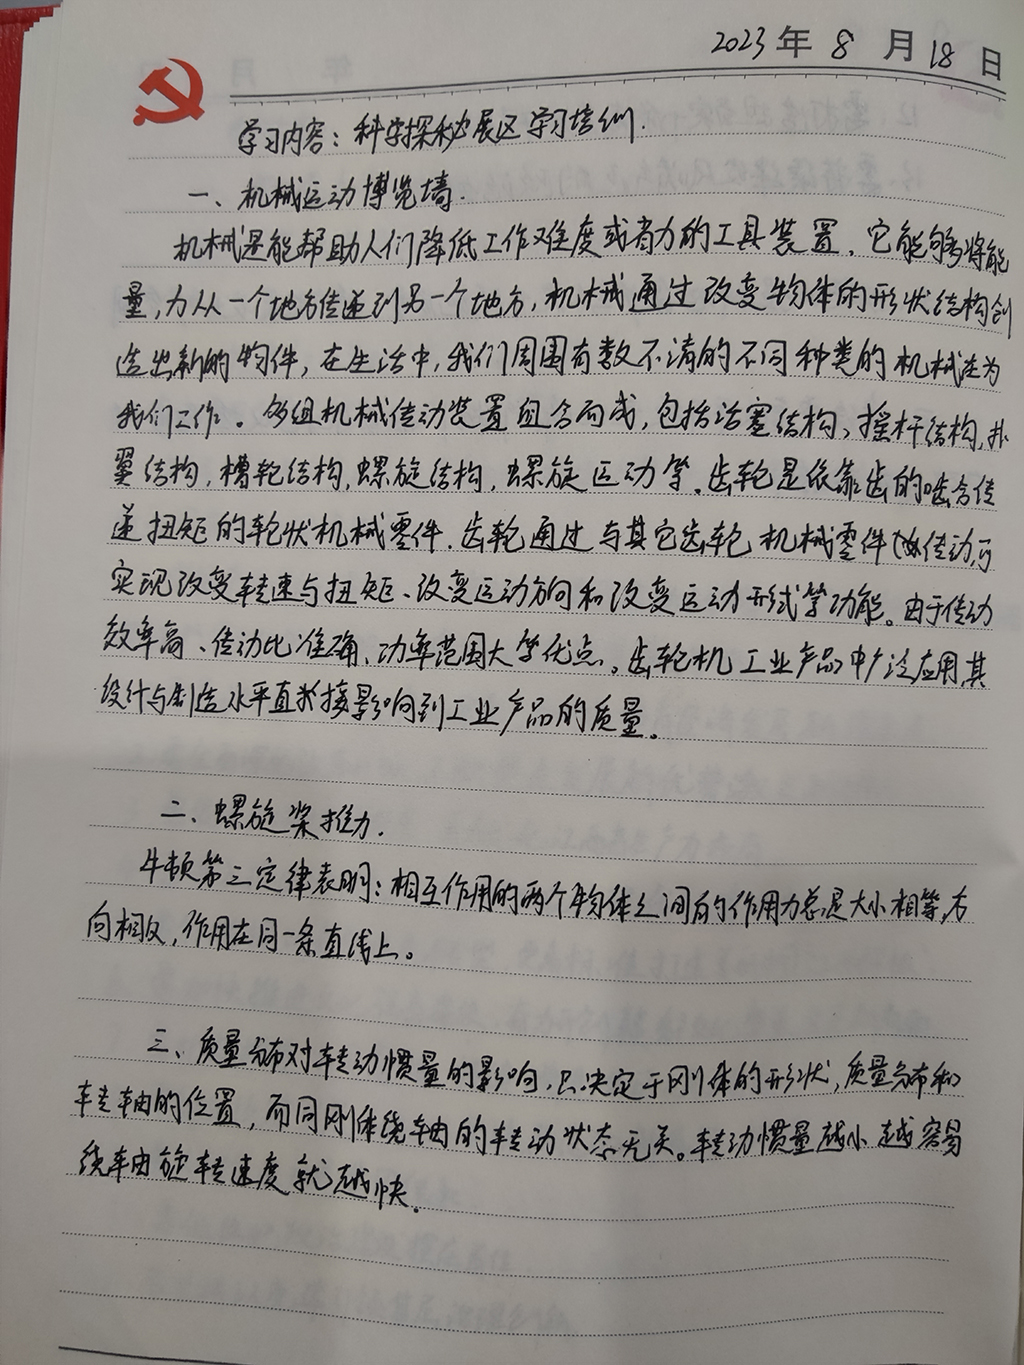 2023年8月18日
学习内容：科学探秘展区学习培训.
一、机械运动博览墙.
机械是能帮助人们降低工作难度或省力的工具装置，它能够将能
量，力从一个地方传递到另一个地方，机械通过改变物体的形状结构创
造出新的物件，在生活中，我们周围有数不清的不同种类的机械在为
我们工作。多组机械传动装置组合而成，包括活塞结构、摇杆结构，扑
翼结构，槽轮结构，螺旋结构，螺旋运动等。齿轮是依靠齿的啮合传
递扭矩的轮状机械零件．齿轮通过与其它齿轮机械零件传动，可
实现改变转速与扭矩、改变运动方向和改变运动形式等功能。由于传动
效率高、传动比准确、功率范围大等优点。齿轮机工业产品中广泛应用，其
设计与制造水平直接影响到工业产品的质量。
二、螺旋桨推力.
牛顿第三定律表明：相互作用的两个物体之间的作用力总是大小相等，方
向相反，作用在同一条直线上。
三、质量分布对转动惯量的影响，只决定于刚体的形状，质量分布和
转轴的位置，而同刚体绕轴的转动状态无关。转动惯量越小越容易
绕轴旋转速度就越快.